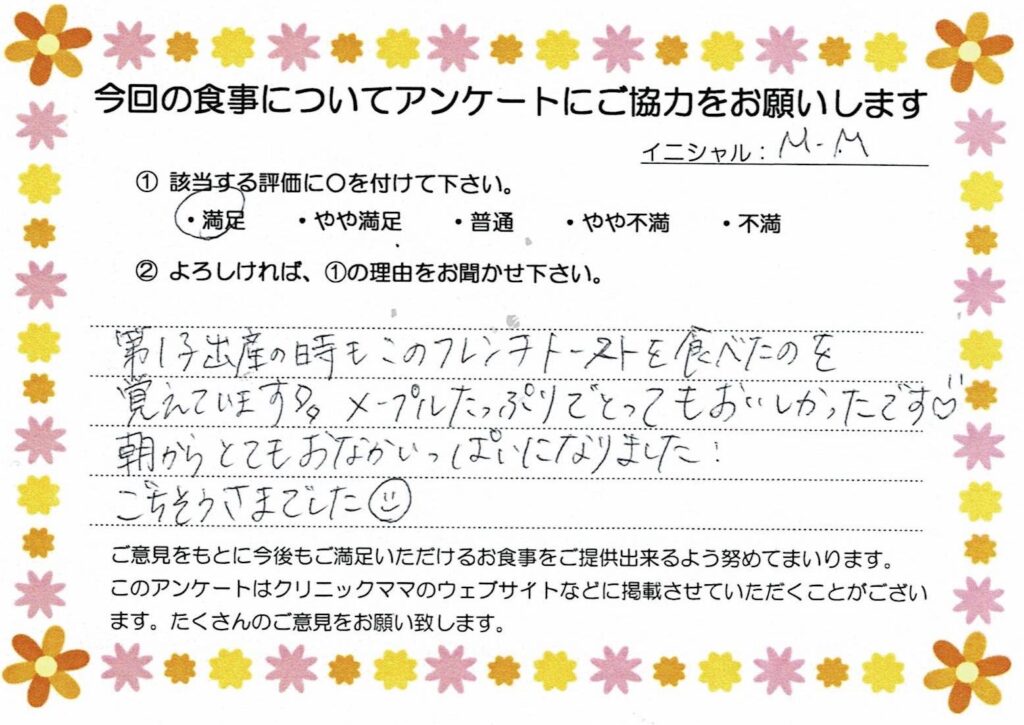 今回の食事についてアンケートにご協力をお願いします
イニシャル：M-M
① 該当する評価に〇を付けて下さい。
・満足 ・やや満足 ・普通 ・やや不満 ・不満
② よろしければ、①の理由をお聞かせ下さい。
第1子出産の時もこのフレンチトーストを食べたのを
覚えています メープルたっぷりでとってもおいしかったです♡
朝からとてもおなかいっぱいになりました!
ごちそうさまでした☺
ご意見をもとに今後もご満足いただけるお食事をご提供出来るよう努めてまいります。
このアンケートはクリニックママのウェブサイトなどに掲載させていただくことがござい
ます。たくさんのご意見をお願い致します。